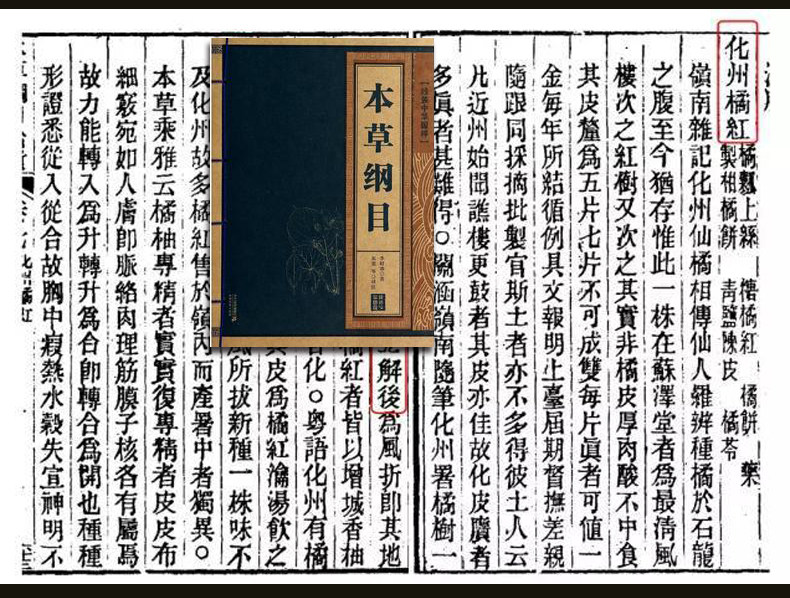 化州橘紅 橘瓤上絲 橘紅 橘餅 藥
製柑橘餅 青鹽陳皮 橘苓
嶺南雜記化州仙橘相傳仙人羅辨種橘於石龍
之腹至今猶存惟此一株在蘇澤堂者爲最清風
樓次之紅樹又次之其實非橘皮厚肉酸不中食
其皮釐爲五片七片不可成雙每片眞者可値一
金每年所結循例具文報明上臺屆期督撫差親
隨跟同採摘批製官斯土者亦不多得彼土人云
凡近州始聞譙樓更鼓者其皮亦佳故化皮贋者
多眞者甚難得○關涵嶺南隨筆化州署橘樹一
解後爲風折卽其地
橘紅者皆以增城香柚
化○粤語化州有橘
皮爲橘紅瀹湯飲之
風所拔新種一株味不
及化州故多橘紅售於嶺內而產署中者獨異○
本草乘雅云橘柚專精者實實復專精者皮皮布
細竅宛如人膚卽脈絡肉理筋膜子核各有屬焉
故力能轉入爲升轉升爲合卽轉合爲開也種種
形證悉從入從合故胸中瘕熱水穀失宣神明不
本草纲目